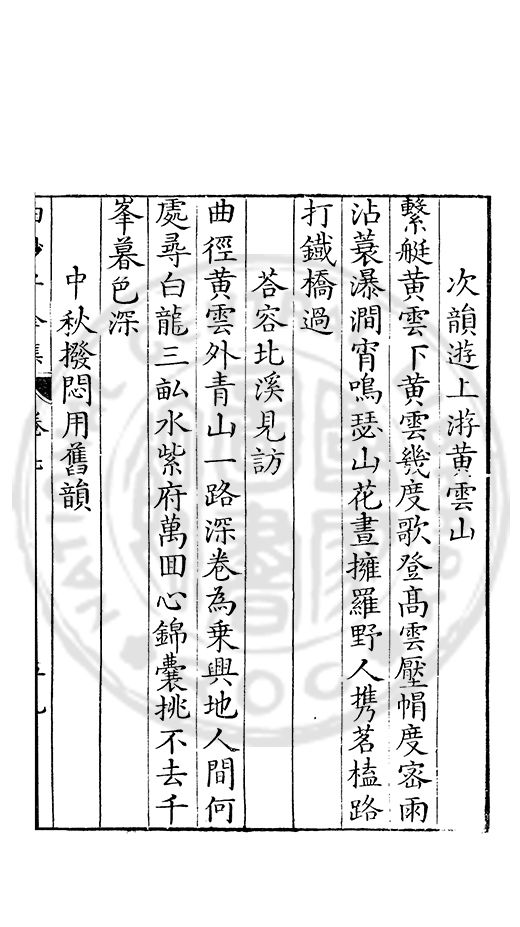 次韻遊上游黄雲山
繫艇黄雲下黄雲幾度歌登髙雲壓㡌度宻雨
沾蓑瀑澗宵鳴瑟山花晝擁羅野人携茗榼路
打鐵橋過
荅容北溪見訪
曲徑黄雲外青山一路深卷為乗興地人間何
處尋白龍三畝水紫府萬囬心錦囊挑不去千
峯暮色深
中秋撥悶用舊韻